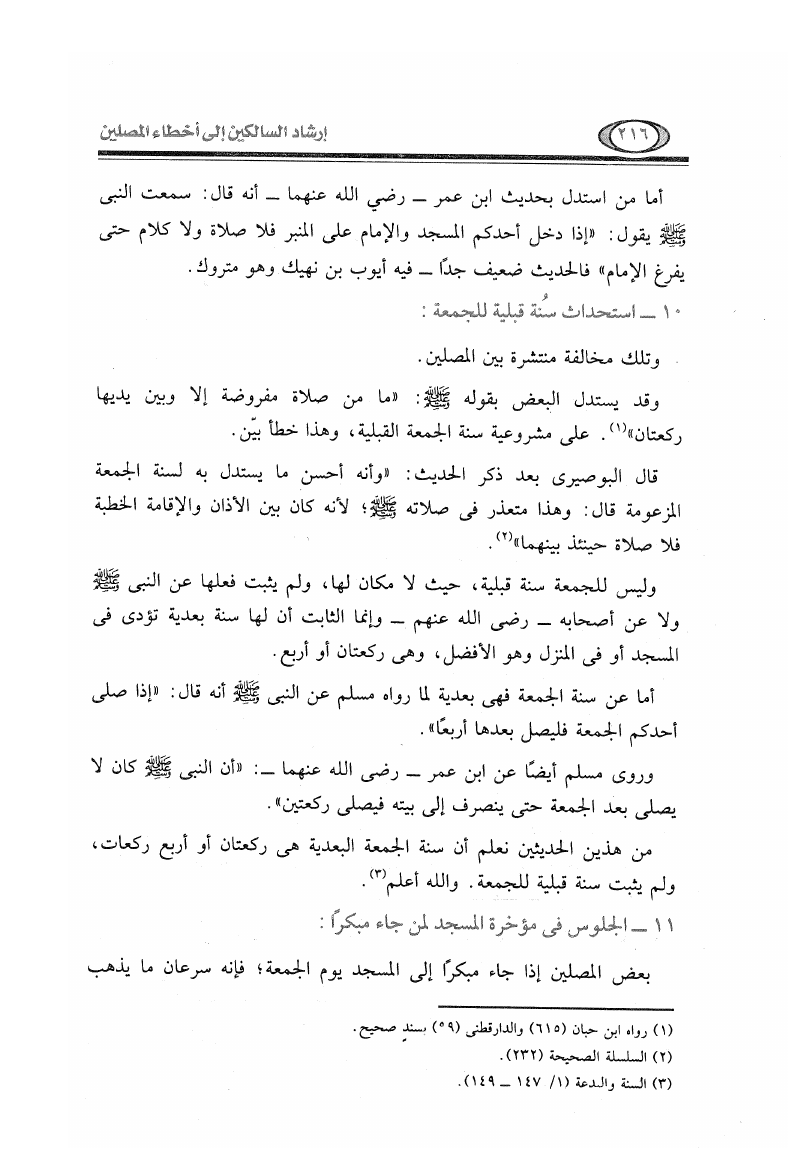 ٢١٦
إرشاد السالكين إلى أخطاء المصلين
أما من استدل بحديث ابن عمر ــ رضي الله عنهما ــ أنه قال: سمعت النبى
ﷺ يقول: «إذا دخل أحدكم المسجد والإمام على المنبر فلا صلاة ولا كلام حتى
يفرغ الإمام» فالحديث ضعيف جدًا ــ فيه أيوب بن نهيك وهو متروك.
١٠ ــ استحداث سُنة قبلية للجمعة :
وتلك مخالفة منتشرة بين المصلين.
وقد يستدل البعض بقوله ﷺ: «ما من صلاة مفروضة إلا وبين يديها
ركعتان»(١). على مشروعية سنة الجمعة القبلية، وهذا خطأ بيّن.
قال البوصيرى بعد ذكر الحديث: «وأنه أحسن ما يستدل به لسنة الجمعة
المزعومة قال: وهذا متعذر فى صلاته ﷺ؛ لأنه كان بين الأذان والإقامة الخطبة
فلا صلاة حينئذ بينهما»(٢).
وليس للجمعة سنة قبلية، حيث لا مكان لها، ولم يثبت فعلها عن النبى ﷺ
ولا عن أصحابه ــ رضى الله عنهم ــ وإنما الثابت أن لها سنة بعدية تؤدى فى
المسجد أو فى المنزل وهو الأفضل، وهى ركعتان أو أربع.
أما عن سنة الجمعة فهى بعدية لما رواه مسلم عن النبى ﷺ أنه قال: «إذا صلى
أحدكم الجمعة فليصل بعدها أربعًا».
وروى مسلم أيضًا عن ابن عمر ــ رضى الله عنهما ــ: «أن النبى ﷺ كان لا
يصلى بعد الجمعة حتى ينصرف إلى بيته فيصلى ركعتين».
من هذين الحديثين نعلم أن سنة الجمعة البعدية هى ركعتان أو أربع ركعات،
ولم يثبت سنة قبلية للجمعة. والله أعلم(٣).
١١ ــ الجلوس فى مؤخرة المسجد لمن جاء مبكرًا :
بعض المصلين إذا جاء مبكرًا إلى المسجد يوم الجمعة؛ فإنه سرعان ما يذهب
(١) رواه ابن حبان (٦١٥) والدارقطنى (٥٩) بسندٍ صحيح.
(٢) السلسلة الصحيحة (٢٣٢).
(٣) السنة والبدعة (١/ ١٤٧ ــ ١٤٩).